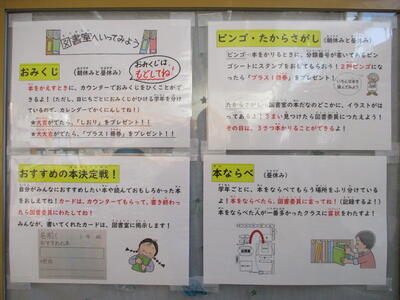 図書室へいってみよう
おみくじ（朝休みと昼休み）
おみくじは、もどしてね！
本をかえすときに、カウンターでおみくじをひくことがで
きるよ！（ただし、日にちごとにおみくじがひける学年を分け
ているので、カレンダーでかくにんしてね！）
★大吉がでたら、「しおり」をプレゼント！！
★大大吉がでたら、「プラス１冊券」をプレゼント！！
ビンゴ・たからさがし（朝休みと昼休み）
ビンゴ…本をかりるときに、分類番号が書いてあるビン
ゴシートにスタンプをおしてもらおう！２列ビンゴに
なったら「プラス１冊券」をプレゼント！
いろんな本を読んでみよう
たからさがし…図書室の本だなのどこかに、イラストがは
ってあるよ！うまい見つけたら図書委員につたえよう！
その日は、３さつ本がかりることができるよ！
おすすめの本決定戦！
自分がみんなにおすすめしたい本や読んでおもしろかった本
をおしえてね！カードは、カウンターでもらって、書き終わっ
たら図書委員にわたしてね！
みんなが、書いてくれたカードは、図書室に掲示します！
名前（
おすすめの本
本ならべ（昼休み）
学年ごとに、本をならべてもらう場所をふり分けている
よ！本をならべたら、図書委員に言ってね！（記録するよ！）
本をならべた人が一番多かったクラスに賞状をわたすよ！